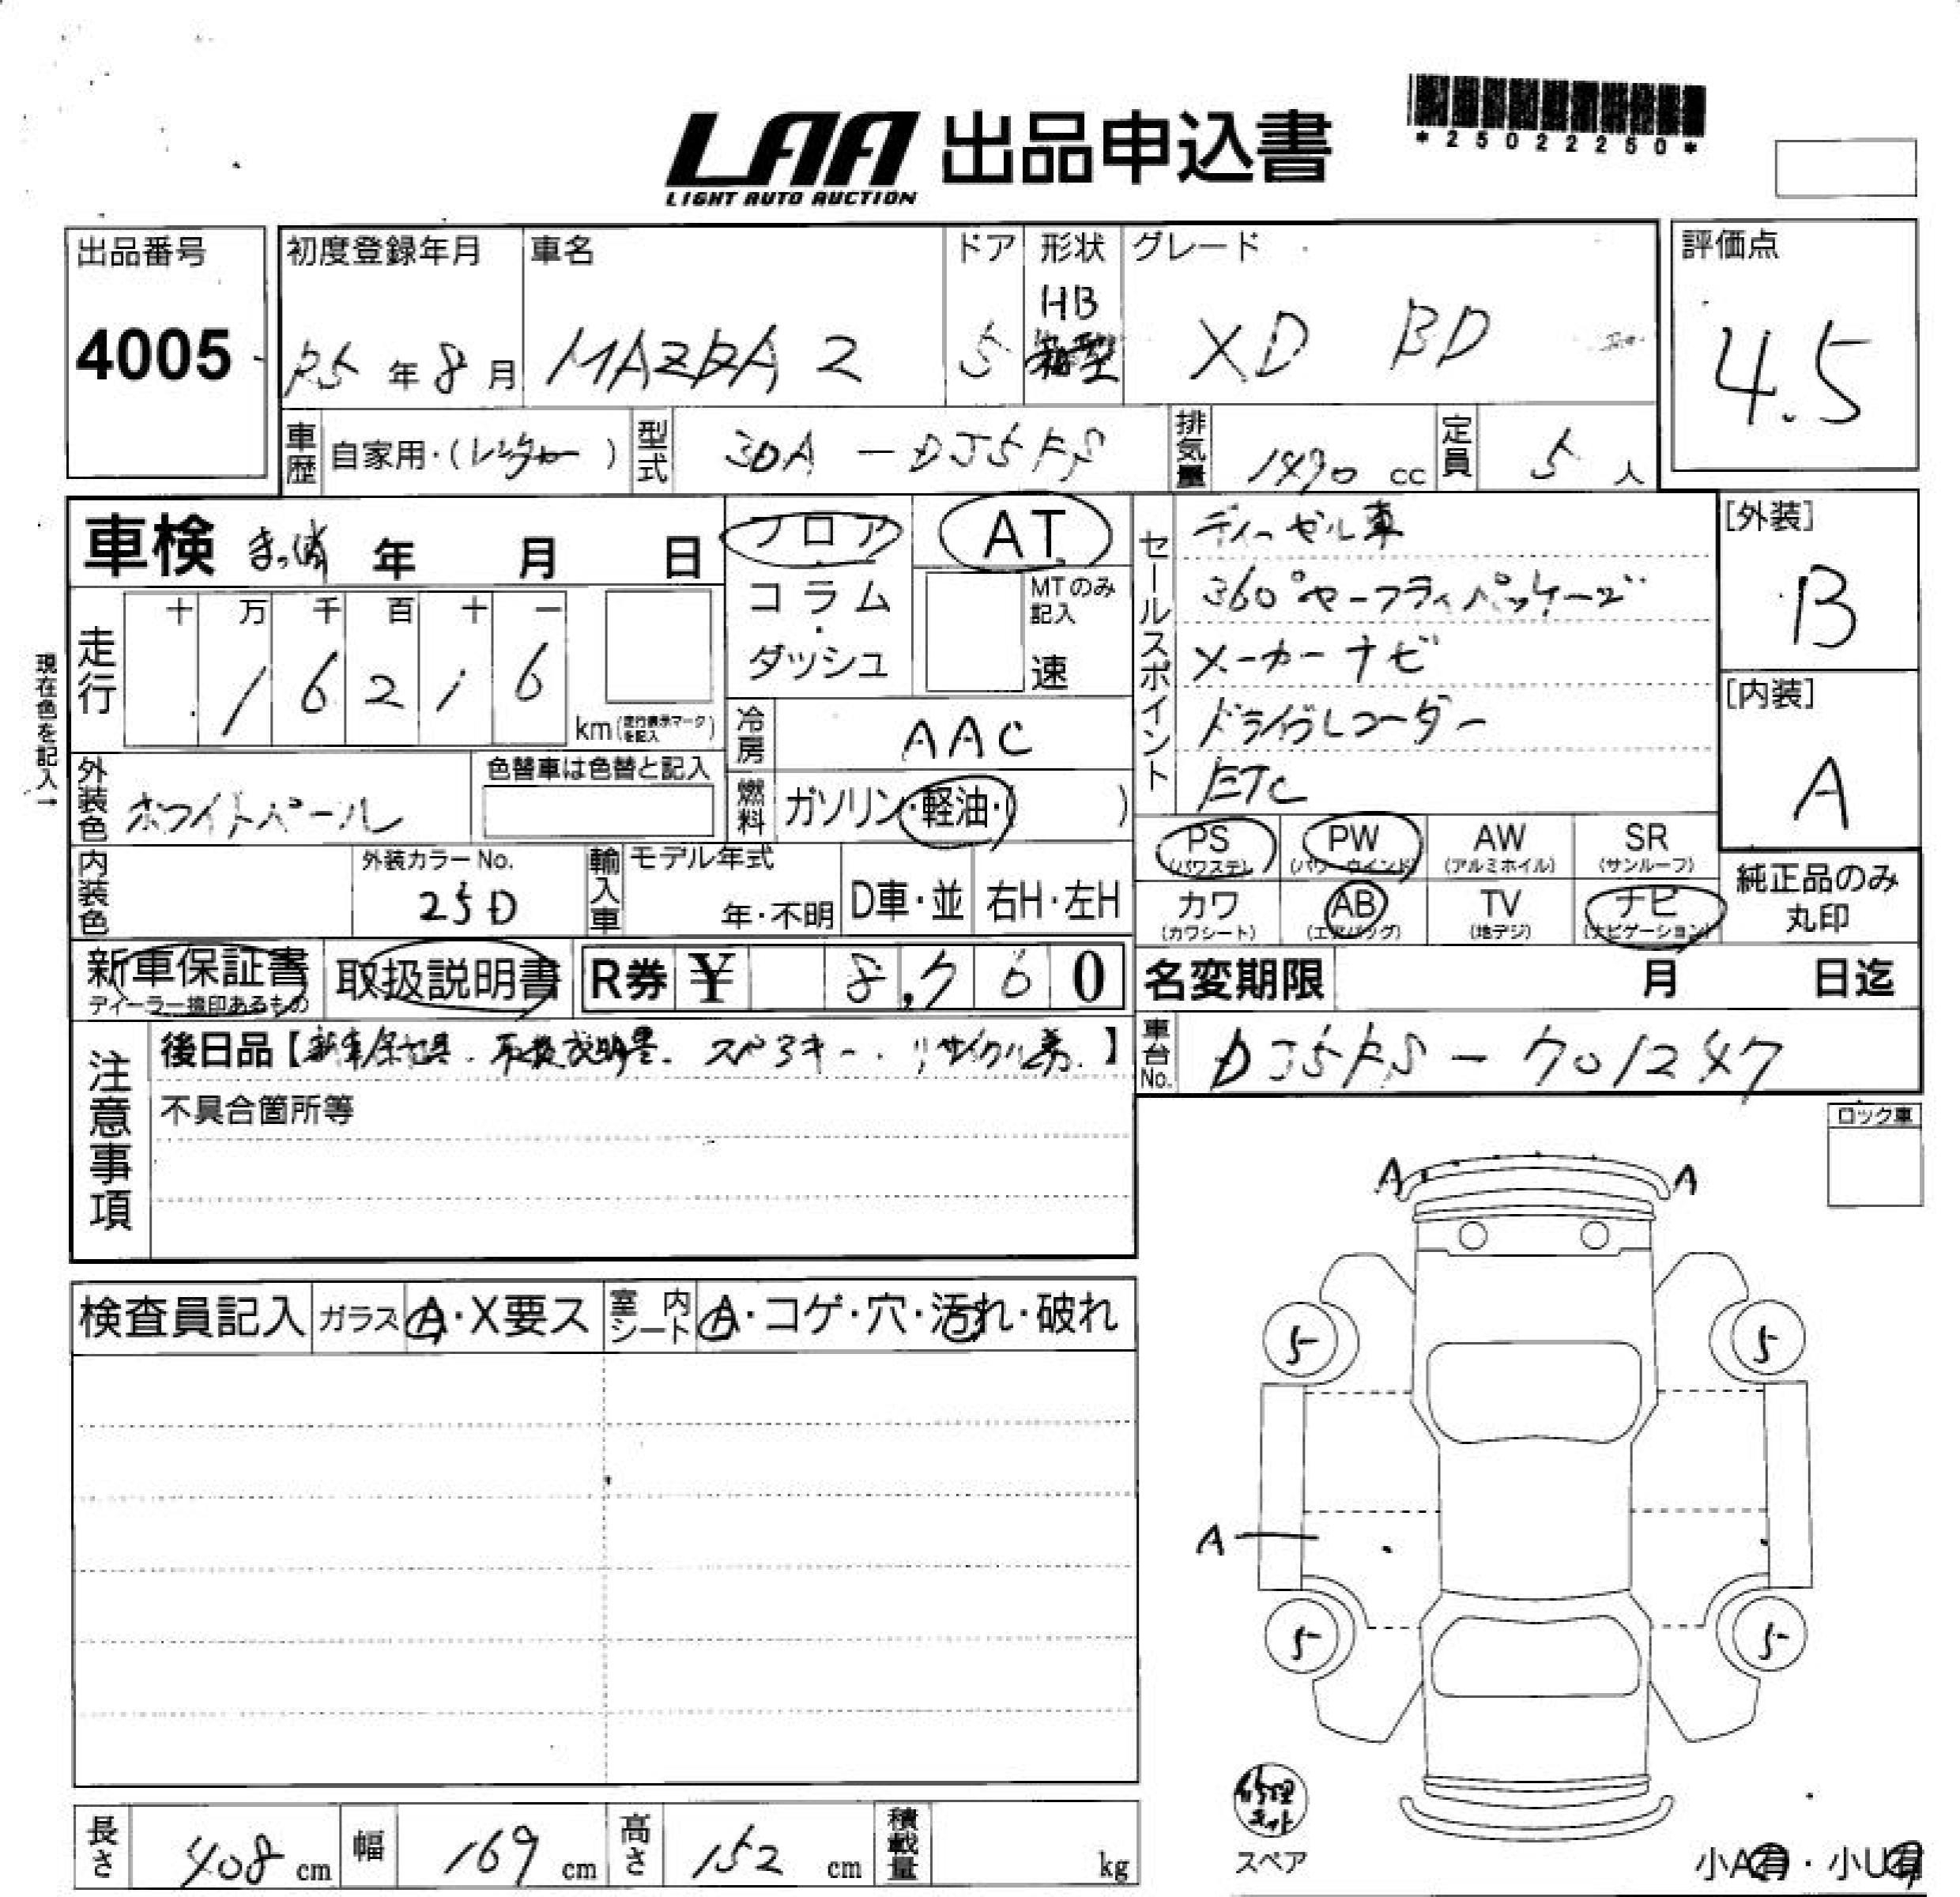 LAA 出品申込書
LIGHT AUTO AUCTION
*25022250*
出品番号
4005
初度登録年月
R5年8月
車名
MAZDA 2
ドア
5
形状
HB
箱型
グレード
XD BD
評価点
4.5
車歴
自家用・(レンタカー)
型式
3DA-DJ5FS
排気量
1490 cc
定員
5人
車検 まっ消 年 月 日
フロア・コラム・ダッシュ
AT
MTのみ記入
速
走行
十 万 千 百 十 一
1 6 2 1 6
km(走行表示マークを記入)
現在色を記入→
冷房
AAC
外装色
ホワイトパール
色替車は色替と記入
燃料
ガソリン・軽油・( )
内装色
外装カラーNo.
25D
輸入車
モデル年式
年・不明
D車・並
右H・左H
セールスポイント
ディーゼル車
360°セーフティパッケージ
メーカーナビ
ドライブレコーダー
ETC
[外装]
B
[内装]
A
PS (パワステ)
PW (パワーウインド)
AW (アルミホイル)
SR (サンルーフ)
カワ (カワシート)
AB (エアバッグ)
TV (地デジ)
ナビ (ナビゲーション)
純正品のみ丸印
新車保証書
ディーラー捺印あるもの
取扱説明書
R券 ¥ 8,760
名変期限 月 日迄
注意事項
後日品【新車保証書・取扱説明書・スペアキー・リサイクル券】
車台No.
DJ5FS-701247
不具合箇所等
ロック車
A A
検査員記入
ガラス A・X要ス
室内シート A・コゲ・穴・汚れ・破れ
5 5
A
5 5
修理キット
スペア
長さ 408 cm
幅 169 cm
高さ 152 cm
積載量 kg
小A有・小U有